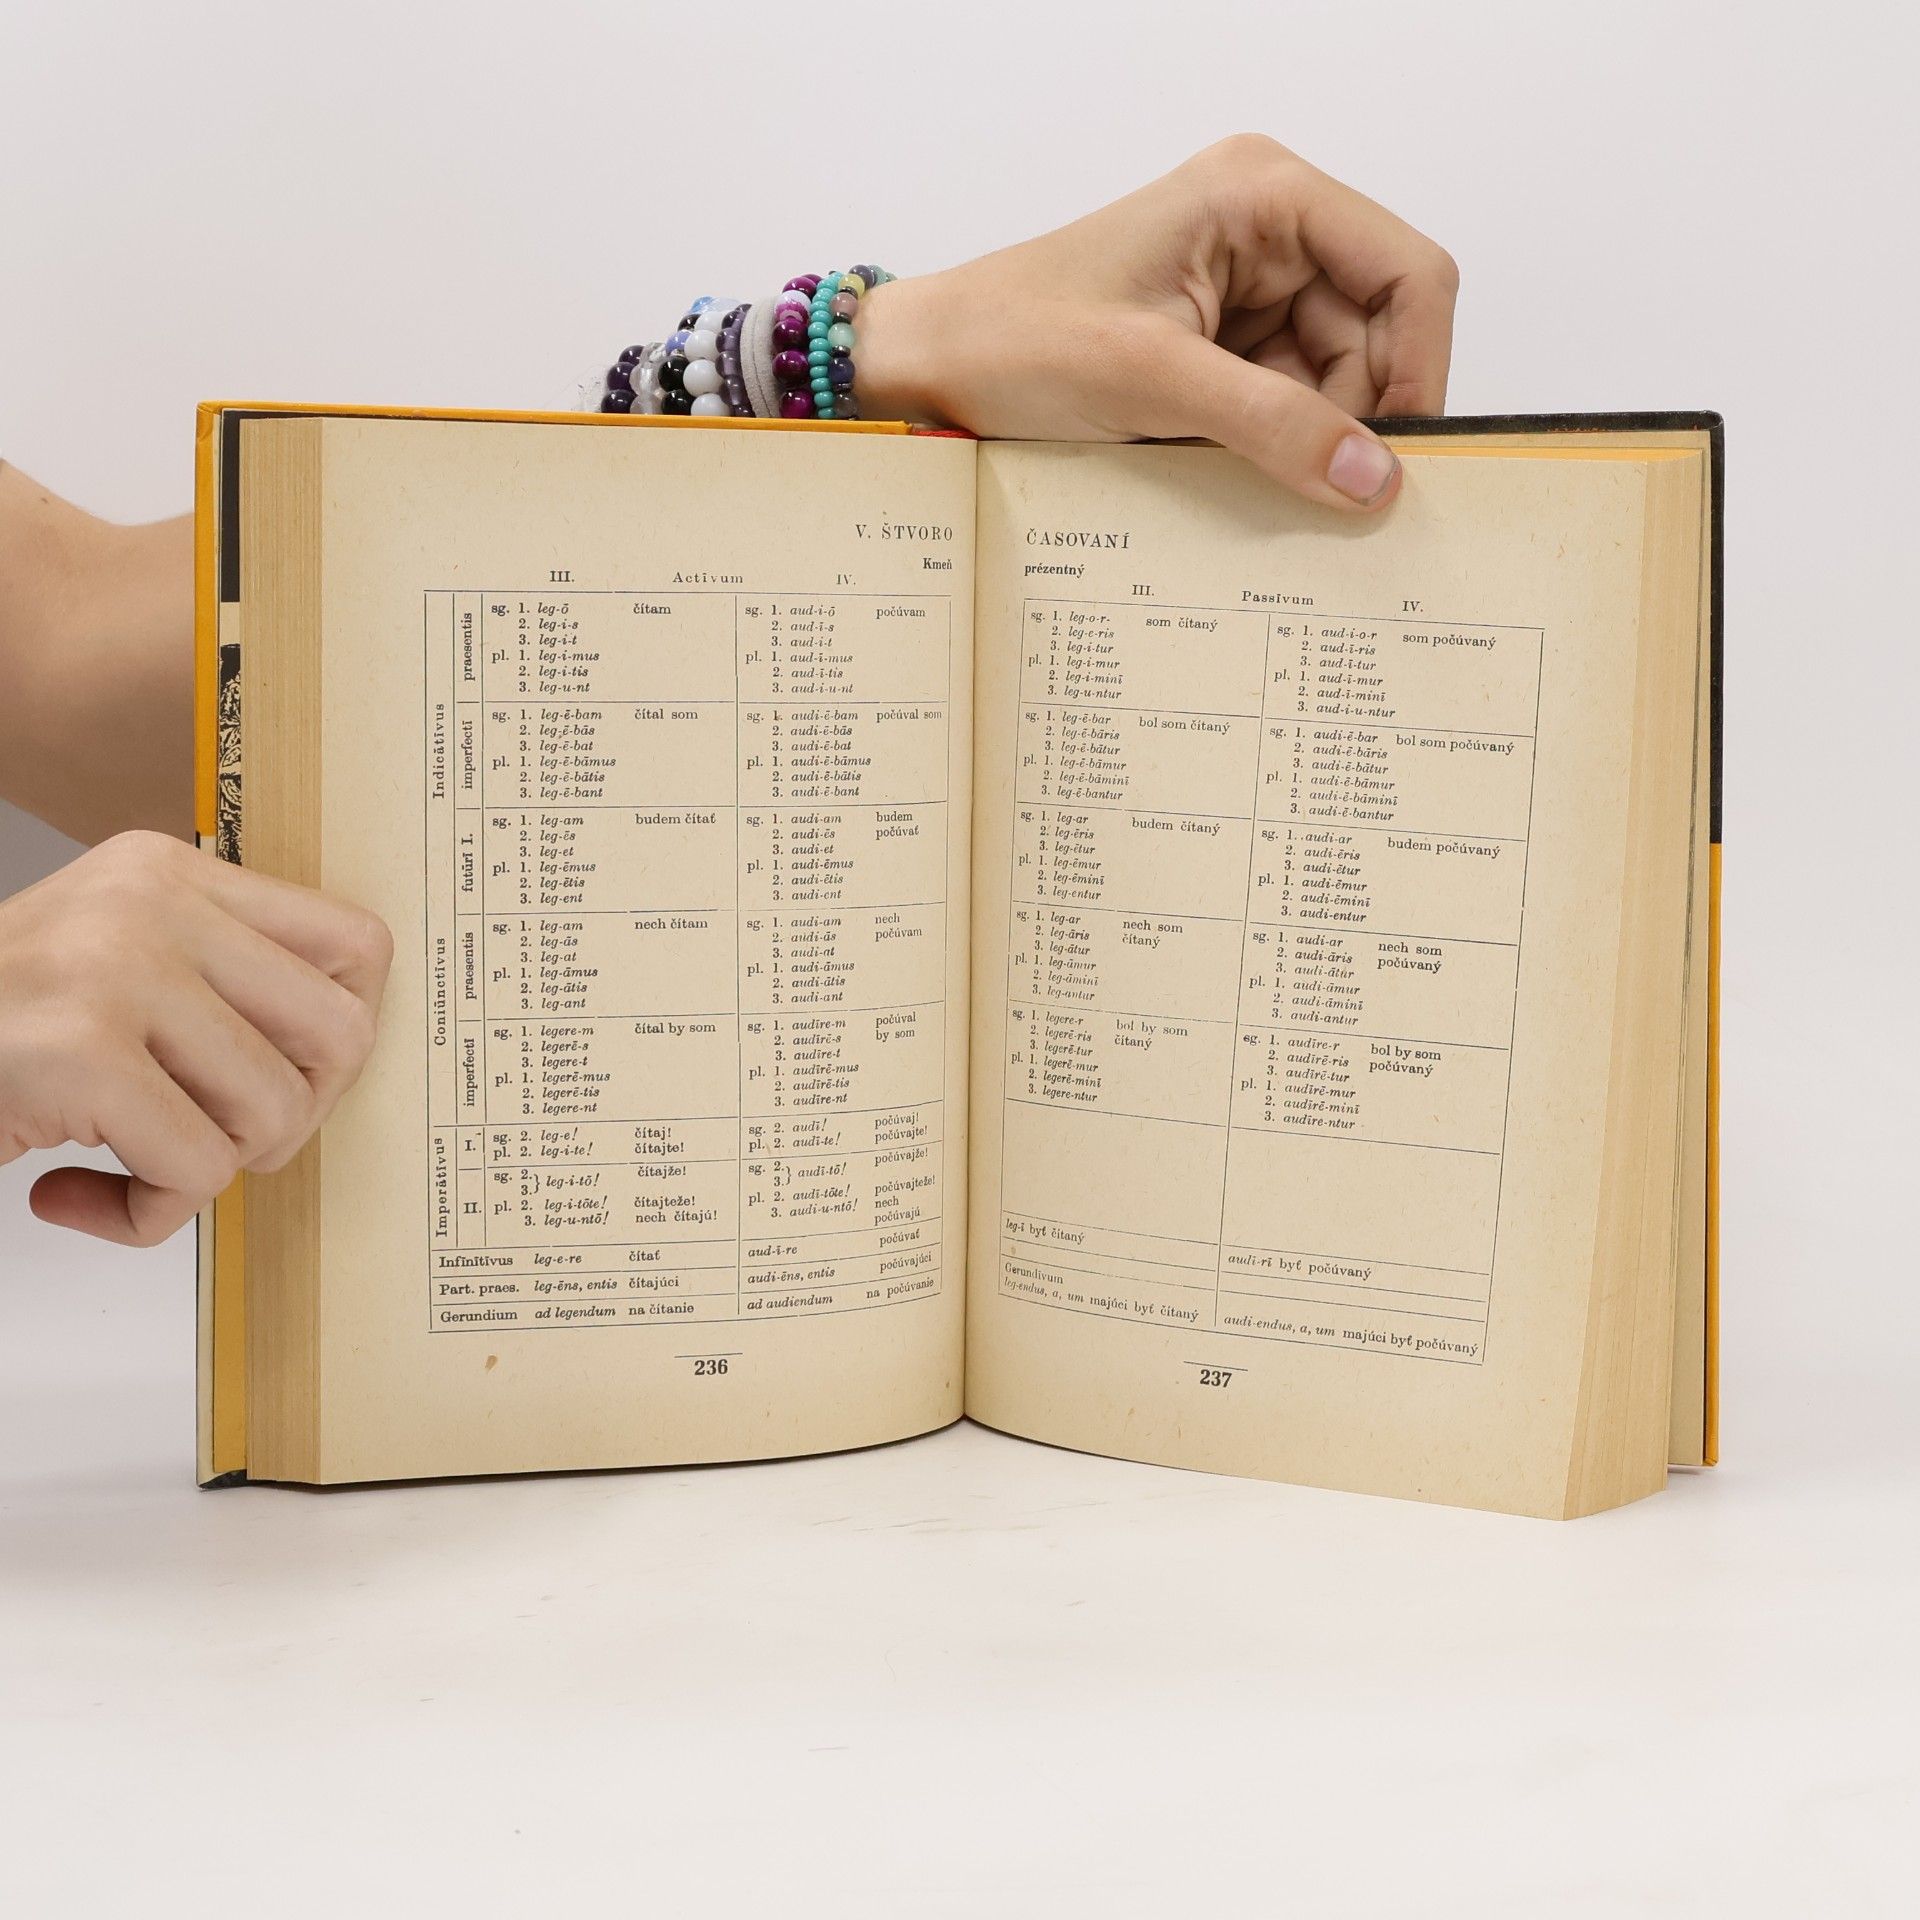 V. ŠTVORO
Kmeň
III. Actīvum IV.
Indicātīvus
praesentis
sg. 1. leg-ō čítam
2. leg-i-s
3. leg-i-t
pl. 1. leg-i-mus
2. leg-i-tis
3. leg-u-nt
sg. 1. aud-i-ō počúvam
2. aud-ī-s
3. aud-i-t
pl. 1. aud-ī-mus
2. aud-ī-tis
3. aud-i-u-nt
imperfectī
sg. 1. leg-ē-bam čítal som
2. leg-ē-bās
3. leg-ē-bat
pl. 1. leg-ē-bāmus
2. leg-ē-bātis
3. leg-ē-bant
sg. 1. audi-ē-bam počúval som
2. audi-ē-bās
3. audi-ē-bat
pl. 1. audi-ē-bāmus
2. audi-ē-bātis
3. audi-ē-bant
futūrī I.
sg. 1. leg-am budem čítať
2. leg-ēs
3. leg-et
pl. 1. leg-ēmus
2. leg-ētis
3. leg-ent
sg. 1. audi-am budem
2. audi-ēs počúvať
3. audi-et
pl. 1. audi-ēmus
2. audi-ētis
3. audi-ent
Coniūnctīvus
praesentis
sg. 1. leg-am nech čítam
2. leg-ās
3. leg-at
pl. 1. leg-āmus
2. leg-ātis
3. leg-ant
sg. 1. audi-am nech
2. audi-ās počúvam
3. audi-at
pl. 1. audi-āmus
2. audi-ātis
3. audi-ant
imperfectī
sg. 1. legere-m čítal by som
2. legerē-s
3. legere-t
pl. 1. legerē-mus
2. legerē-tis
3. legere-nt
sg. 1. audīre-m počúval
2. audīrē-s by som
3. audīre-t
pl. 1. audīrē-mus
2. audīrē-tis
3. audīre-nt
Imperātīvus
I.
sg. 2. leg-e! čítaj!
pl. 2. leg-i-te! čítajte!
sg. 2. audī! počúvaj!
pl. 2. audī-te! počúvajte!
II.
sg. 2. čítajže!
3.} leg-i-tō!
pl. 2. leg-i-tōte! čítajteže!
3. leg-u-ntō! nech čítajú!
sg. 2. počúvajže!
3.} audī-tō!
pl. 2. audī-tōte! počúvajteže!
3. audi-u-ntō! nech
počúvajú
Infīnītīvus leg-e-re čítať aud-ī-re počúvať
Part. praes. leg-ēns, entis čítajúci audi-ēns, entis počúvajúci
Gerundium ad legendum na čítanie ad audiendum na počúvanie
236
ČASOVANÍ
prézentný
III. Passīvum IV.
sg. 1. leg-o-r- som čítaný
2. leg-e-ris
3. leg-i-tur
pl. 1. leg-i-mur
2. leg-i-minī
3. leg-u-ntur
sg. 1. aud-i-o-r som počúvaný
2. aud-ī-ris
3. aud-ī-tur
pl. 1. aud-ī-mur
2. aud-ī-minī
3. aud-i-u-ntur
sg. 1. leg-ē-bar bol som čítaný
2. leg-ē-bāris
3. leg-ē-bātur
pl. 1. leg-ē-bāmur
2. leg-ē-bāminī
3. leg-ē-bantur
sg. 1. audi-ē-bar bol som počúvaný
2. audi-ē-bāris
3. audi-ē-bātur
pl. 1. audi-ē-bāmur
2. audi-ē-bāminī
3. audi-ē-bantur
sg. 1. leg-ar budem čítaný
2. leg-ēris
3. leg-ētur
pl. 1. leg-ēmur
2. leg-ēminī
3. leg-entur
sg. 1. audi-ar budem počúvaný
2. audi-ēris
3. audi-ētur
pl. 1. audi-ēmur
2. audi-ēminī
3. audi-entur
sg. 1. leg-ar nech som
2. leg-āris čítaný
3. leg-ātur
pl. 1. leg-āmur
2. leg-āminī
3. leg-antur
sg. 1. audi-ar nech som
2. audi-āris počúvaný
3. audi-ātur
pl. 1. audi-āmur
2. audi-āminī
3. audi-antur
sg. 1. legere-r bol by som
2. legerē-ris čítaný
3. legerē-tur
pl. 1. legerē-mur
2. legerē-minī
3. legere-ntur
sg. 1. audīre-r bol by som
2. audīrē-ris počúvaný
3. audīrē-tur
pl. 1. audīrē-mur
2. audīrē-minī
3. audīre-ntur
leg-ī byť čítaný
audi-rī byť počúvaný
Gerundīvum
leg-endus, a, um majúci byť čítaný
audi-endus, a, um majúci byť počúvaný
237